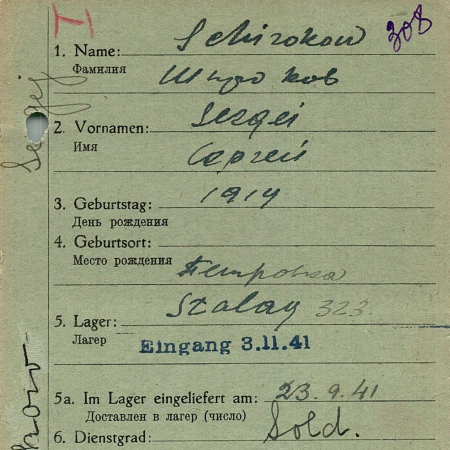 I
308
1. Name: Schirokow
Фамилия Широков
2. Vornamen: Sergei
Имя Сергей
3. Geburtstag: 1914
День рождения
4. Geburtsort:
Место рождения Петровка
5. Lager: Stalag 323
Лагерь Eingang 3.11.41
5a. Im Lager eingeliefert am: 23.9.41
Доставлен в лагерь (число)
6. Dienstgrad: Sold.
Sergej